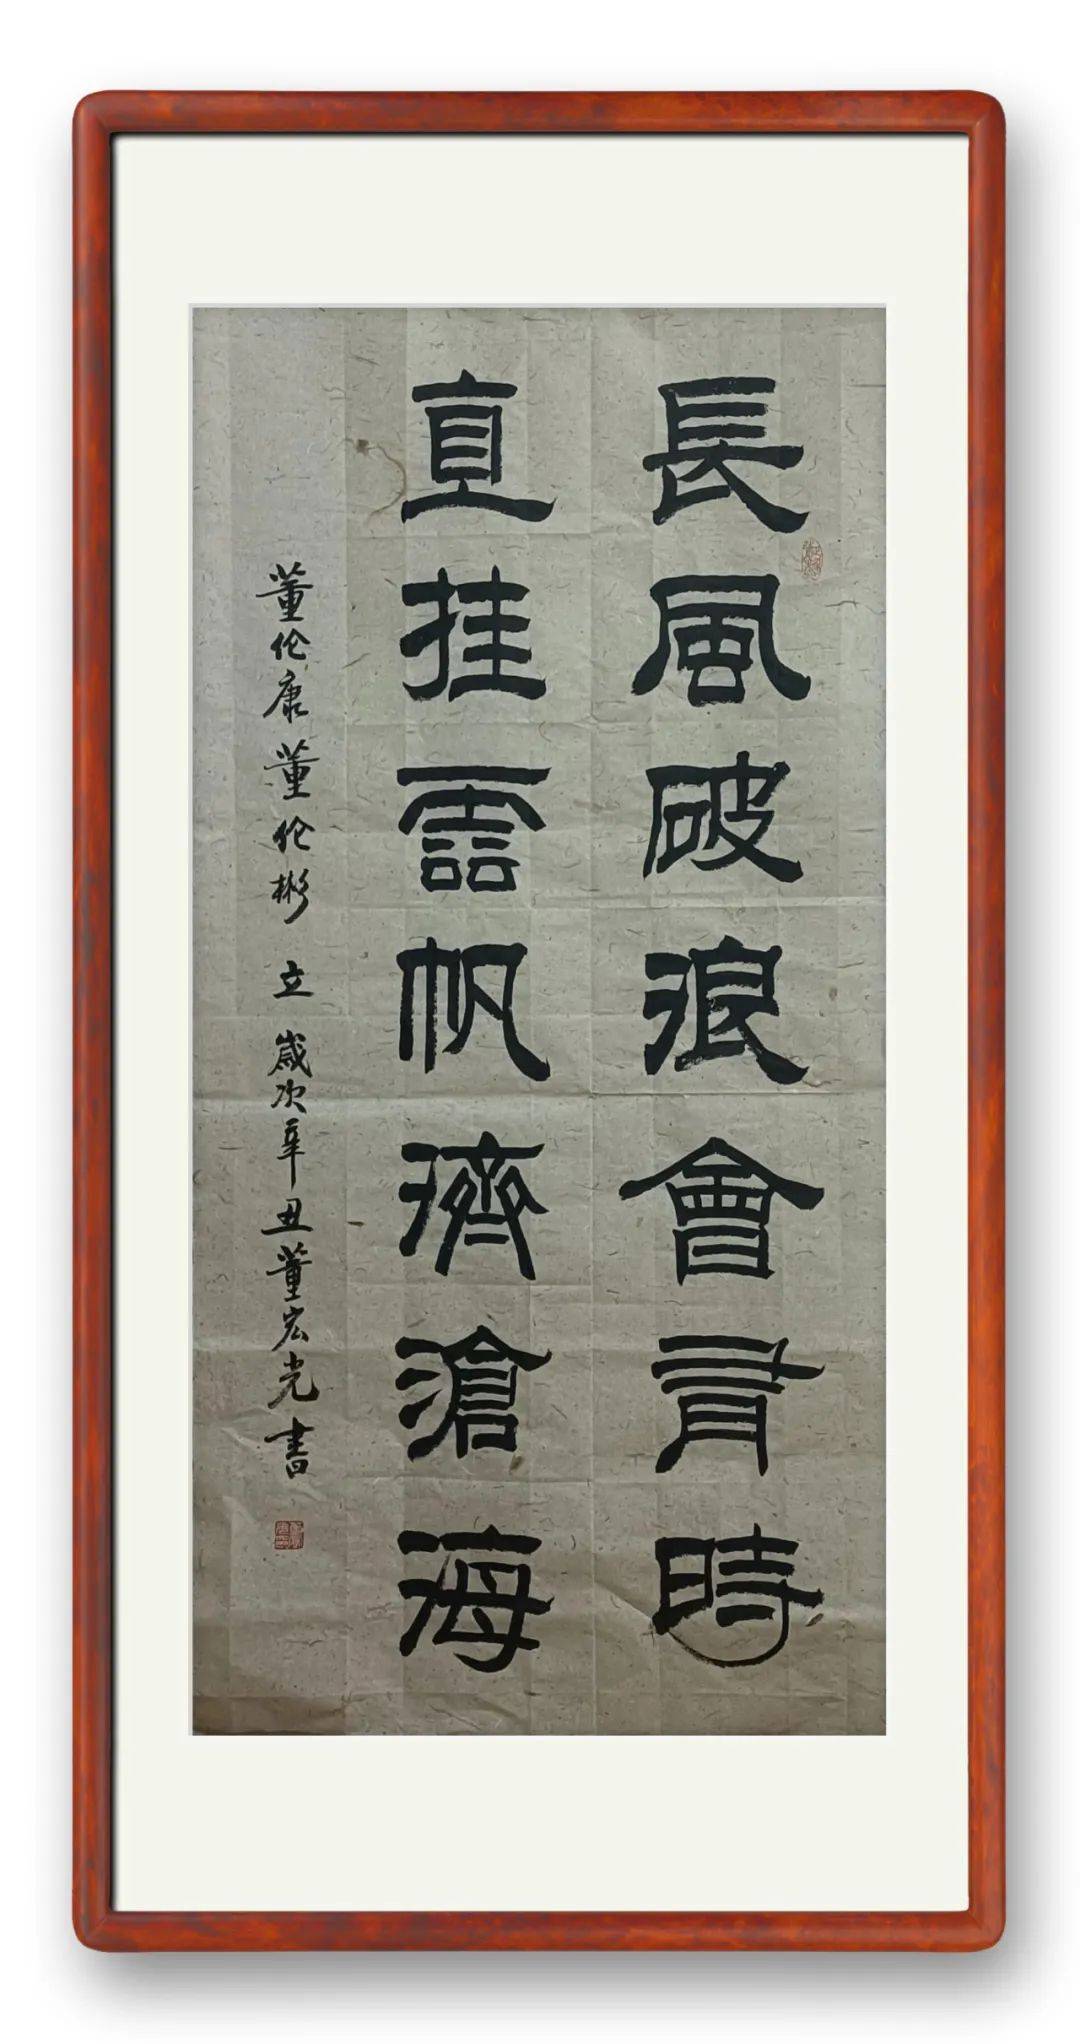 長風破浪會有時
直挂雲帆濟滄海
董伦康董伦彬 立 歲次辛丑董宏光書